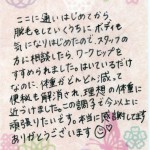 ここに通いはじめてから、
脱毛をしていくうちに、ボディも
気になりはじめたので、スタッフの
方に相談したら、ワンピックを
すすめられました。はいているだけ
なのに、体重がどんどん減って
便秘も解消され、理想の体重に
近づけました。この調子で今以上に
頑張りたいです。本当に感謝してます
ありがとうございます